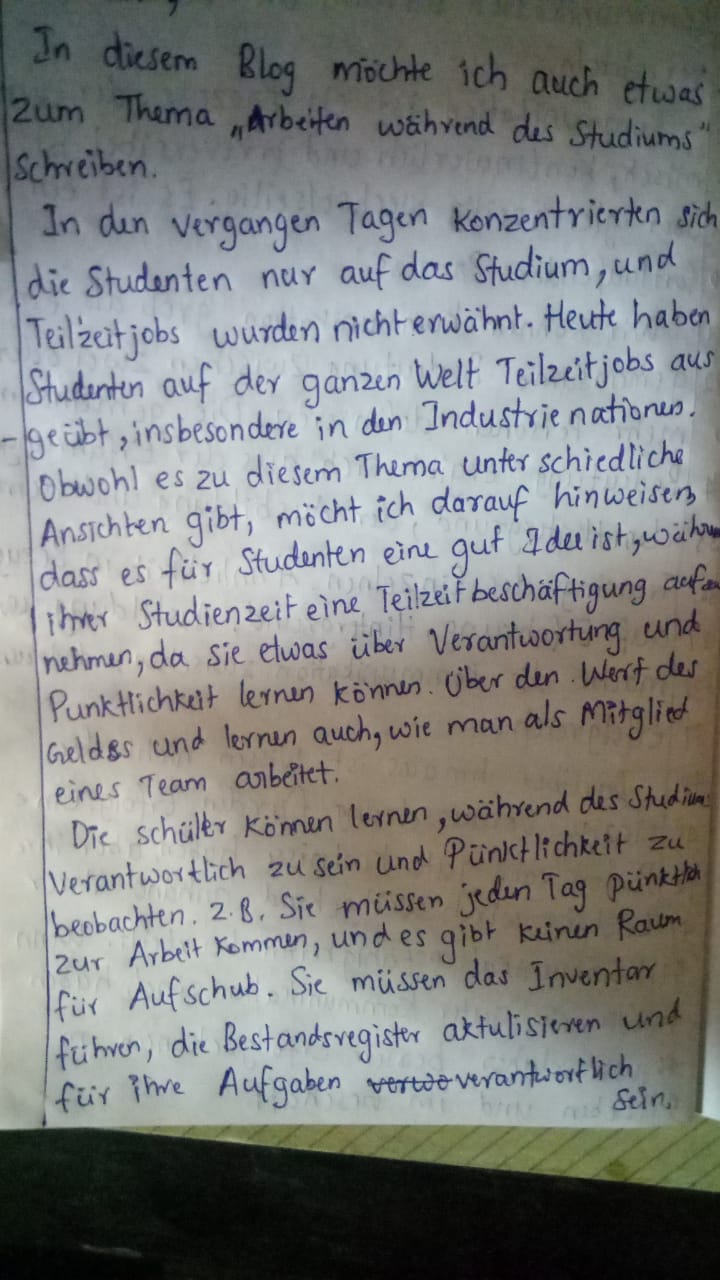 In diesem Blog möchte ich auch etwas
zum Thema „Arbeiten während des Studiums"
Schreiben.
In den vergangen Tagen konzentrierten sich
die Studenten nur auf das Studium, und
Teilzeitjobs wurden nicht erwähnt. Heute haben
Studenten auf der ganzen Welt Teilzeitjobs aus
-geübt, insbesondere in den Industrienationen.
Obwohl es zu diesem Thema unterschiedliche
Ansichten gibt, möcht ich darauf hinweisen,
dass es für Studenten eine gut Idee ist,
ihrer Studienzeit eine Teilzeitbeschäftigung auf
nehmen, da sie etwas über Verantwortung und
Punktlichkeit lernen können. Über den Wert des
Geldes und lernen auch, wie man als Mitglied
eines Team arbeitet.
Die schüler können lernen, während des Studiums
Verantwortlich zu sein und Pünktlichkeit zu
beobachten. Z.B. Sie müssen jeden Tag pünktlich
zur Arbeit kommen, und es gibt keinen Raum
für Aufschub. Sie müssen das Inventar
führen, die Bestandsregister aktulisieren und
für ihre Aufgaben verantwortlich
sein.